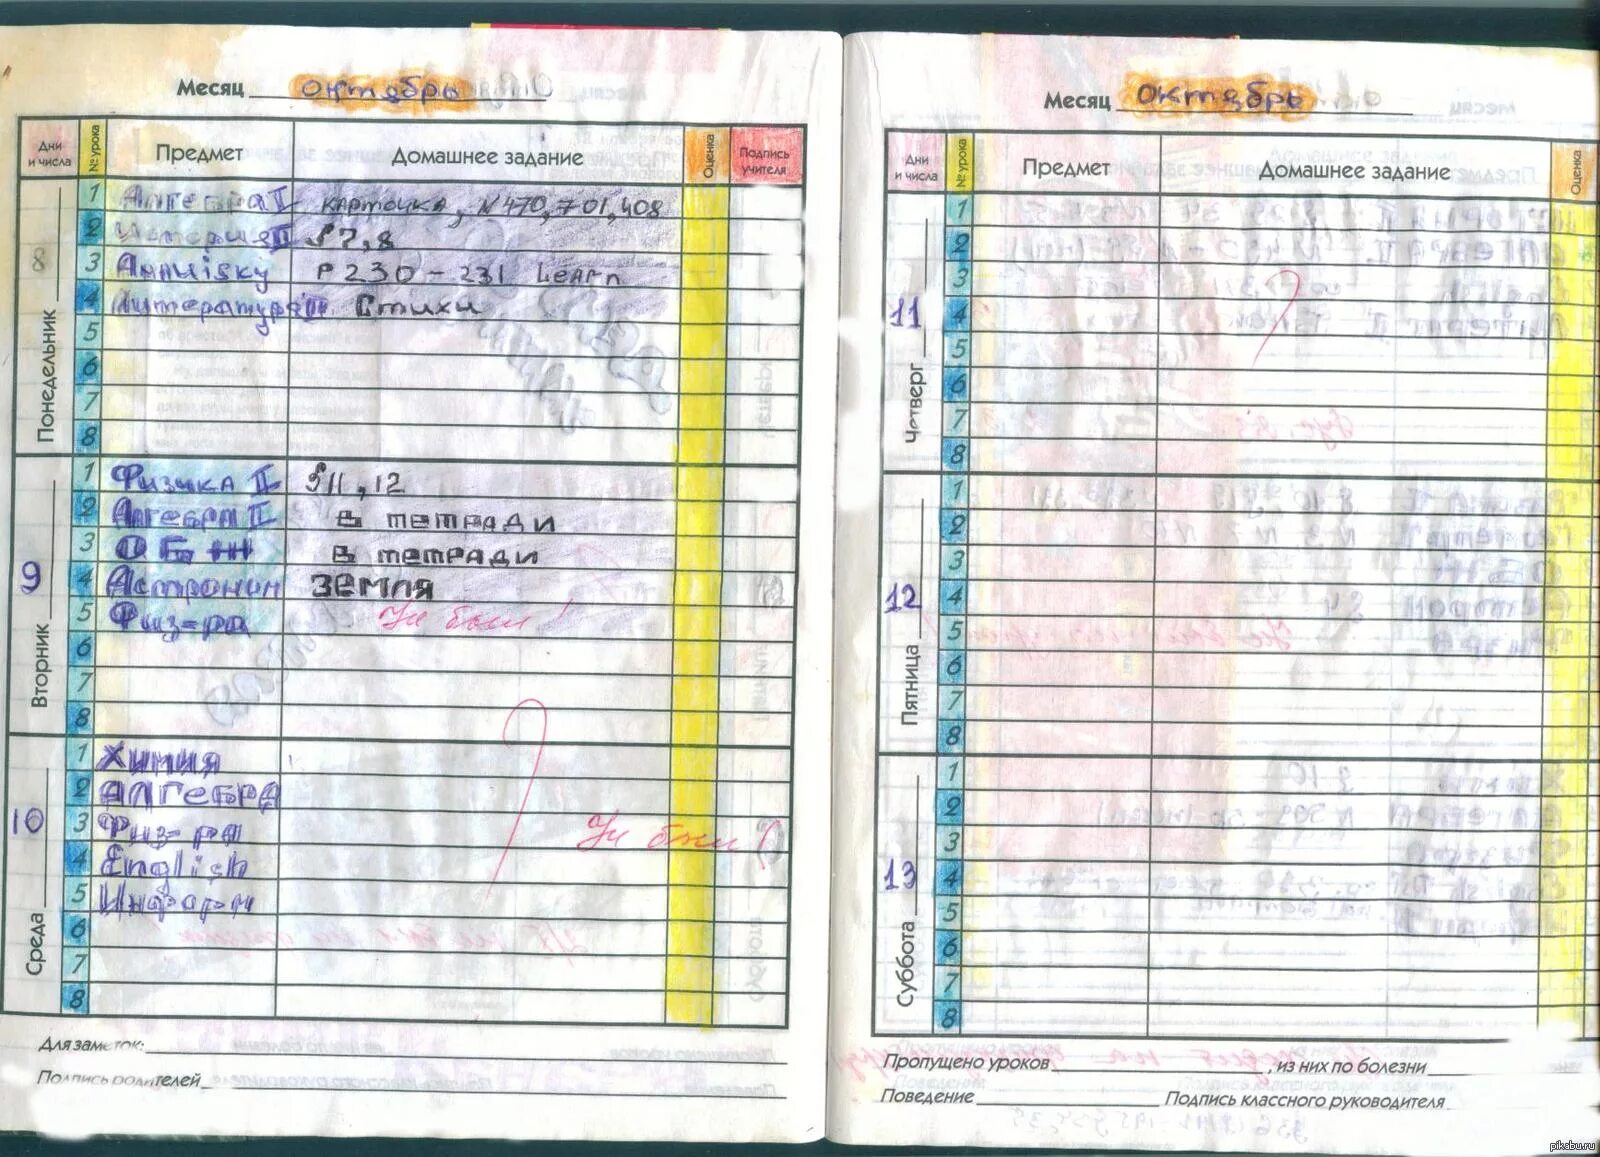 Месяц октябрь
Дни и числа № урока Предмет Домашнее задание Оценка Подпись учителя
8 Понедельник
1 Алгебра II карточка, №470, 701, 408
2 История II §7,8
3 Английsky P 230 - 231 Learn
4 Литература II Стихи
5
6
7
8
9 Вторник
1 Физика II §11, 12
2 Алгебра II В тетради
3 ОБЖ В тетради
4 Астроном ЗЕМЛЯ
5 Физ-ра Не был!
6
7
8
10 Среда
1 Химия
2 Алгебра
3 Физ-ра Не был!
4 English
5 Информ
6
7
8
Для заметок:
Подпись родителей
Месяц октябрь
Дни и числа № урока Предмет Домашнее задание Оценка
11 Четверг
1
2
3
4
5
6
7
8
12 Пятница
1
2
3
4
5
6
7
8
13 Суббота
1
2
3
4
5
6
7
8
Пропущено уроков , из них по болезни
Поведение Подпись классного руководителя
pikabu.ru